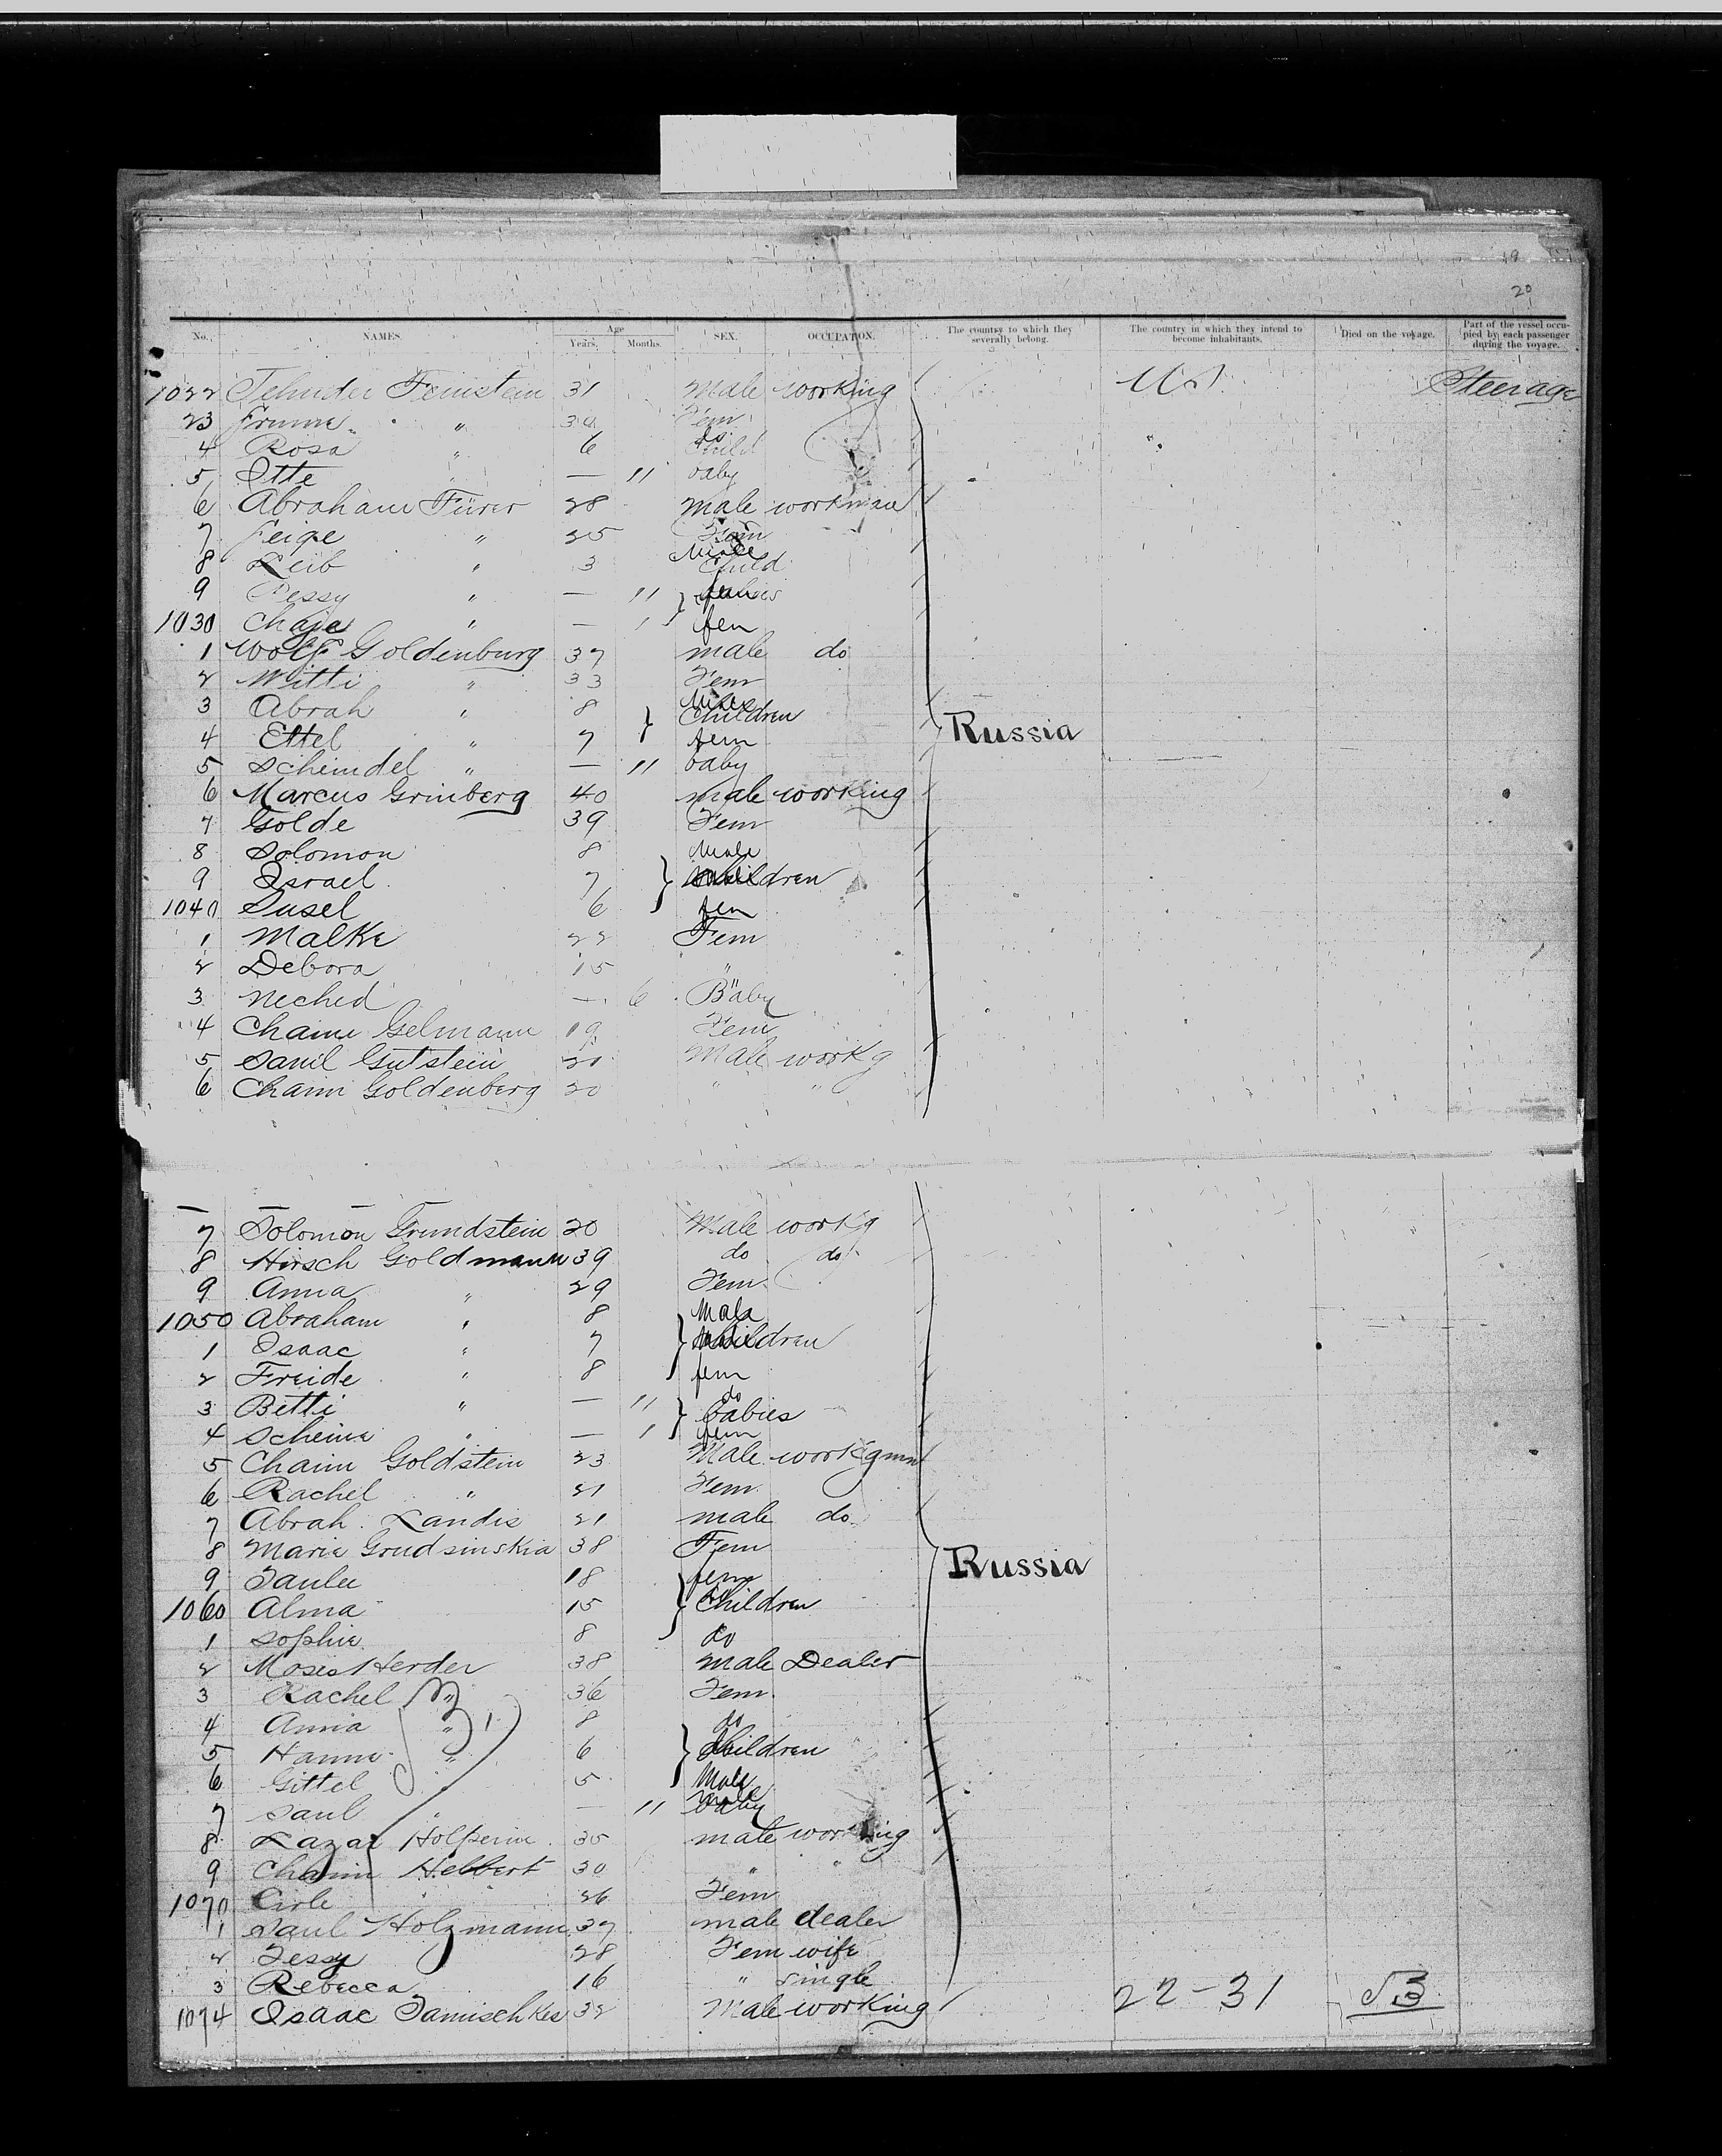 19
20
No. NAMES. Age Years. Months. SEX. OCCUPATION. The country to which they severally belong. The country in which they intend to become inhabitants. Died on the voyage. Part of the vessel occupied by each passenger during the voyage.
1022 Feinstein 31 Male working US Steerage
23 " Fem
4 Rosa " 6 do Child "
5 Itte — 11 baby
6 Abraham Fürer 28 male workman
7 Feige " 25 Fem
8 Leib " 3 Male Child
9 Pessy " — 11
1030 Chaje " — 1 fem
1 Wolf Goldenburg 37 male do
2 Mitti " 33 Fem
3 Abrah " 8 Male Children
4 Ettel " 7 fem Russia
5 Scheindel " — 11 baby
6 Marcus Grinberg 40 male working
7 Golde 39 Fem
8 Solomon 8 Male
9 Israel 7 Children
1040 Susel 6 fem
1 Malke 22 Fem
2 Debora 15 "
3 Neched — 6 Baby
4 Chaim Gelmann 19 Fem
5 Saul Gutstein 21 Male workg
6 Chaim Goldenberg 20 " "
7 Solomon Grundstein 20 Male workg
8 Hirsch Goldmann 39 do do
9 Anna " 29 Fem
1050 Abraham " 8 Male
1 Isaac " 7 Children
2 Freide " 8 fem
3 Betti " — 11 do babies
4 Scheine " — 1 fem
5 Chaim Goldstein 23 Male workgmn
6 Rachel " 21 Fem
7 Abrah. Landis 21 male do
8 Marie Grudsinskia 38 Fem Russia
9 18 fem
1060 Alma 15 Children
1 Sophie 8 do
2 Moses Herder 38 male Dealer
3 Rachel " 36 Fem
4 Anna " 8 do
5 Hanne " 6 Children
6 Gittel " 5 Male
7 Saul " — 11 Male baby
8 Lazar Holperin 35 male working
9 Chaim Helbert 30 " "
1070 Cirle " 26 Fem
1 Saul Holzmann 37 male dealer
2 Jessy 28 Fem wife
3 Rebecca 16 " single
1074 Isaac Jamischkes 32 Male working 22-31